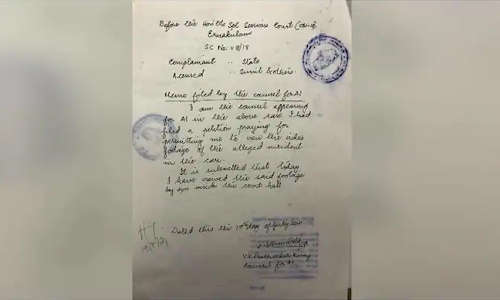 Before the Hon'ble Spl Sessions Court
Ernakulam
SC No. 118/18
Complainant .. State
Accused .. Sunil & others
Memo filed by the counsel for A1
I am the counsel appearing
for A1 in the above case. I had
filed a petition praying for
permitting me to view the video
footage of the alleged incident
in the case.
It is submitted that today
I have viewed the said footage
by 3pm inside the court hall
Dated this the 19th day of July 2021
Counsel for A1